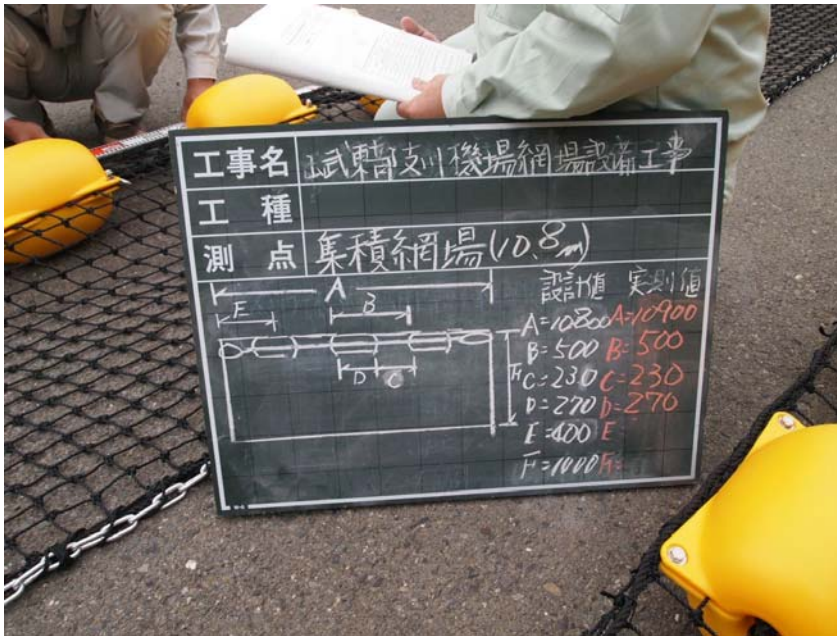 工事名 玉武東部支川機場網場設備工事
工種
測点 集積網場(10.8m)
A
E B
D C
F
設計値 実測値
A=10800 A=10900
B=500 B=500
C=230 C=230
D=270 D=270
E=400 E
F=1000 F=